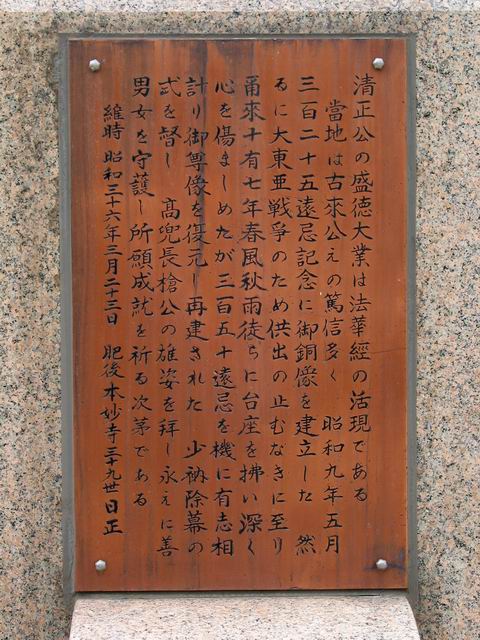 清正公の盛徳大業は法華經の活現である
当地は古來公えの篤信多く 昭和九年五月
三百二十五遠忌記念に御銅像を建立した 然
るに大東亜戦争のため供出の止むなきに至り
爾來十有七年春風秋雨徒らに台座を拂い深く
心を傷ましめたが三百五十遠忌を機に有志相
計り御尊像を復元し再建された 少衲除幕の
式を督し 高兜長槍公の雄姿を拜し永えに善
男女を守護し所願成就を祈る次茅である
維時 昭和三十六年三月二十三日 肥後本妙寺三十九世日正